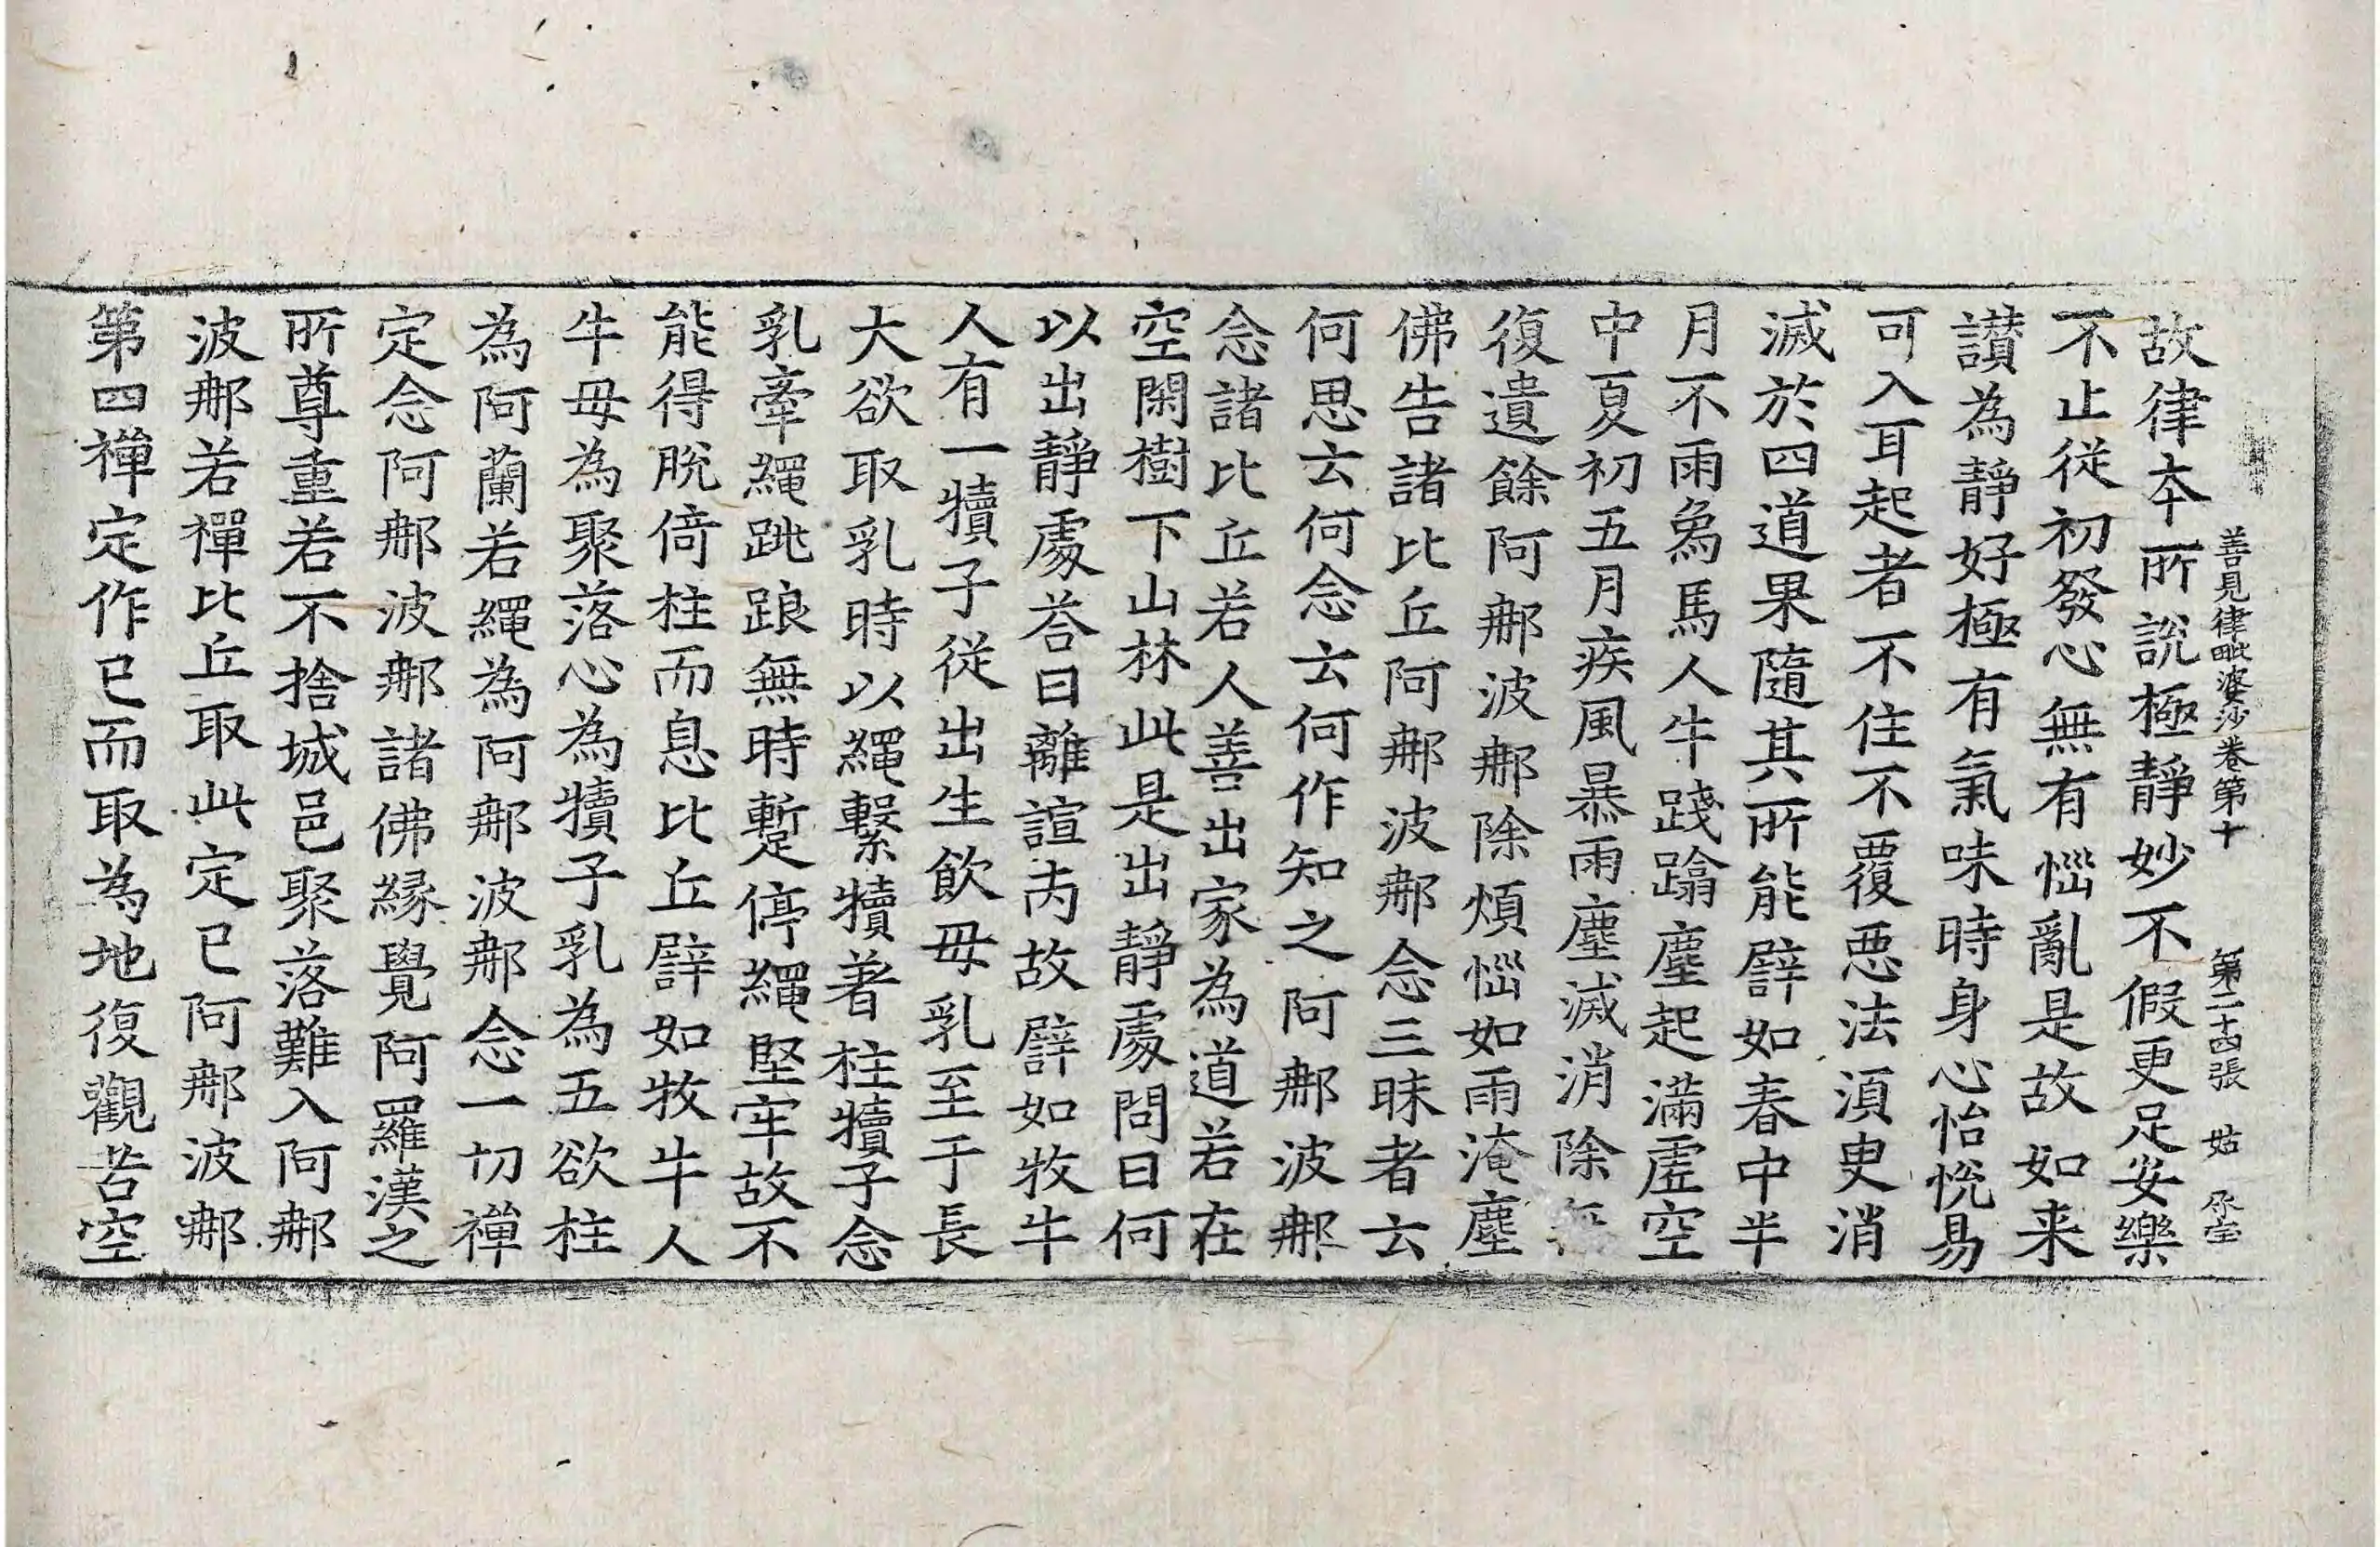 善見律毗婆沙卷第十 第二十四張 姑
故律夲所說極靜妙不假更足安樂
不止從初發心無有惱亂是故如来
讃為靜好極有氣味時身心怡恱易
可入耳起者不住不覆惡法湏臾消
滅於四道果隨其所能譬如春中半
月不雨為馬人牛踐蹹塵起滿虛空
中夏初五月疾風暴雨塵滅消除
復遺餘阿𨚗波𨚗除煩惱如雨淹塵
佛告諸比丘阿𨚗波𨚗念三昧者云
何思云何念云何作知之阿𨚗波𨚗
念諸比丘若人善出家為道若在
空閑樹下山林此是出靜處問曰何
以出靜處荅曰離諠丙故譬如牧牛
人有一犢子從出生飲毋乳至于長
大欲取乳時以繩繫犢著柱犢子念
乳牽繩跳踉無時蹔停繩堅牢故不
能得脫倚柱而息比丘譬如牧牛人
牛毋為聚落心為犢子乳為五欲柱
為阿蘭若繩為阿𨚗波𨚗念一切禪
定念阿𨚗波𨚗諸佛縁覺阿羅漢之
所尊重若不捨城邑聚落難入阿𨚗
波𨚗若禪比丘取此定已阿𨚗波𨚗
第四禪定作已而取為地復觀苦空